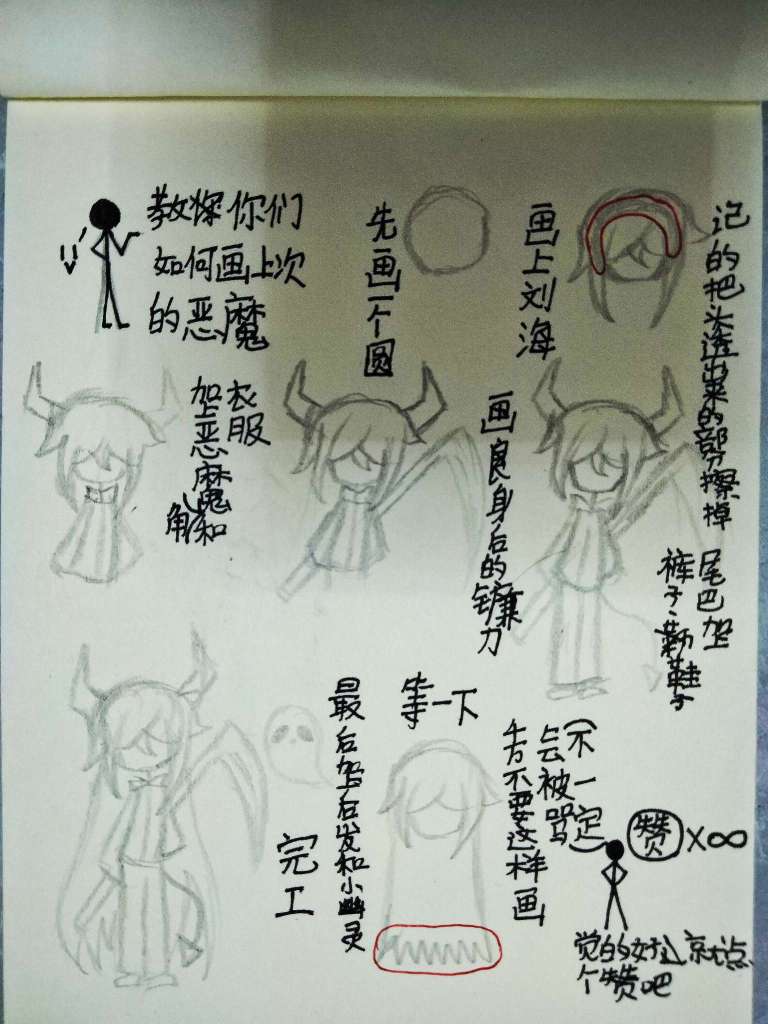 教你们
如何画上次
的恶魔
先画一个圆
画上刘海
记的把头透出来的部分擦掉
加上恶魔角和
衣服
画良身后的镰刀
尾巴加上
裤子、鞋子
最后加上后发和小幽灵
完工
等一下
千万不要这样画
会被骂
(不一定)
赞×∞
觉的好,就点
个赞吧